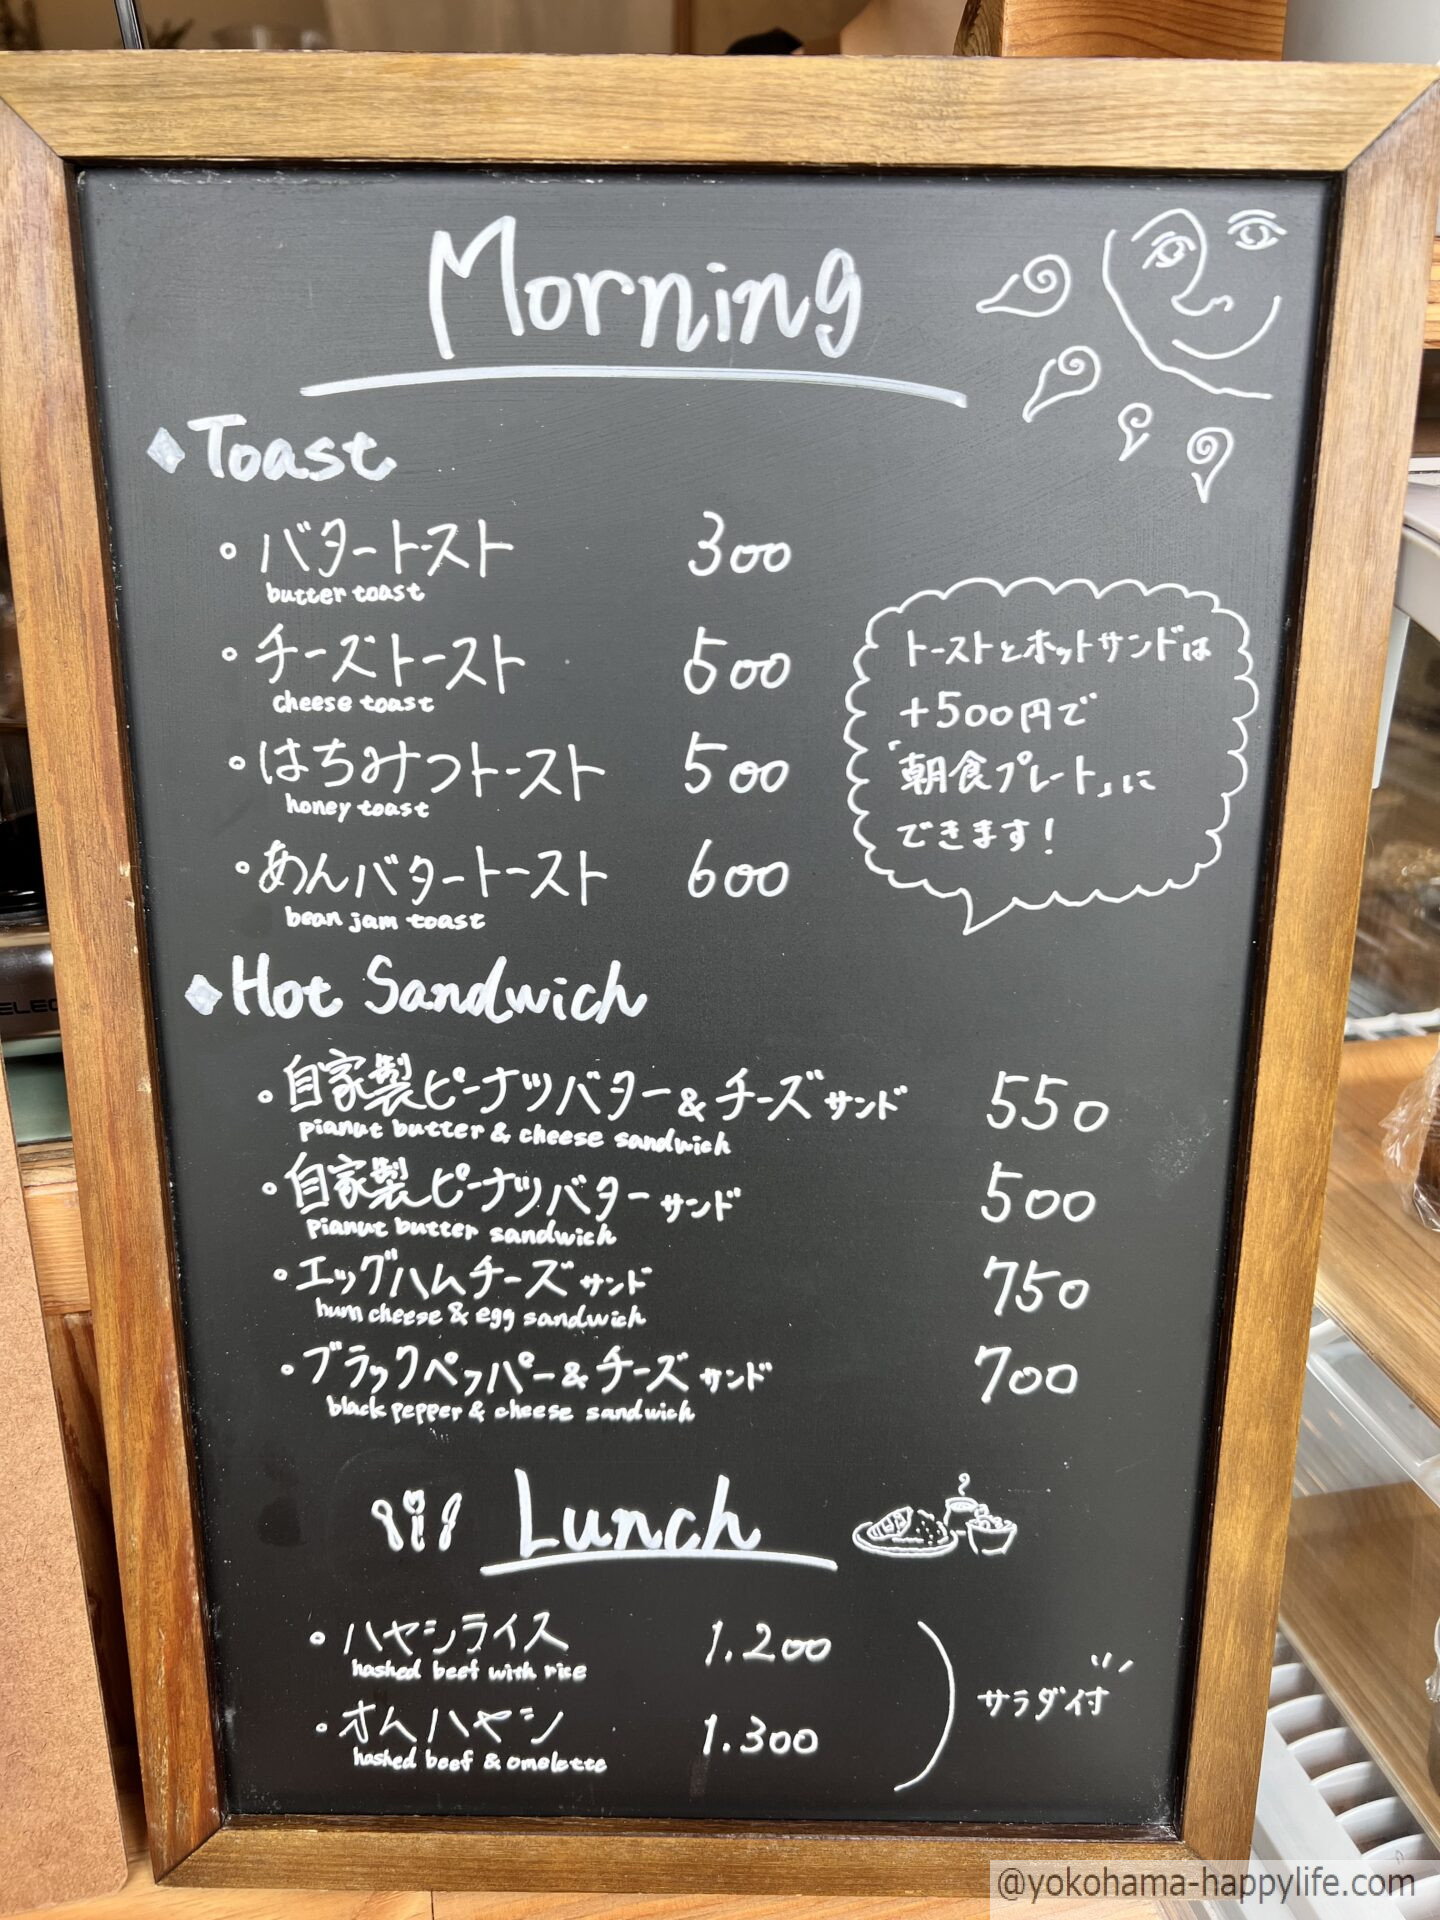 Morning
◆Toast
・バタートースト 300
butter toast
・チーズトースト 500
cheese toast
・はちみつトースト 500
honey toast
・あんバタートースト 600
bean jam toast
トーストとホットサンドは
+500円で
「朝食プレート」に
できます!
◆Hot Sandwich
・自家製ピーナッツバター&チーズサンド 550
pianut butter & cheese sandwich
・自家製ピーナッツバターサンド 500
pianut butter sandwich
・エッグハムチーズサンド 750
hum cheese & egg sandwich
・ブラックペッパー&チーズサンド 700
black pepper & cheese sandwich
Lunch
・ハヤシライス 1.200
hashed beef with rice
・オムハヤシ 1.300
hashed beef & omelette
サラダ付
@yokohama-happylife.com